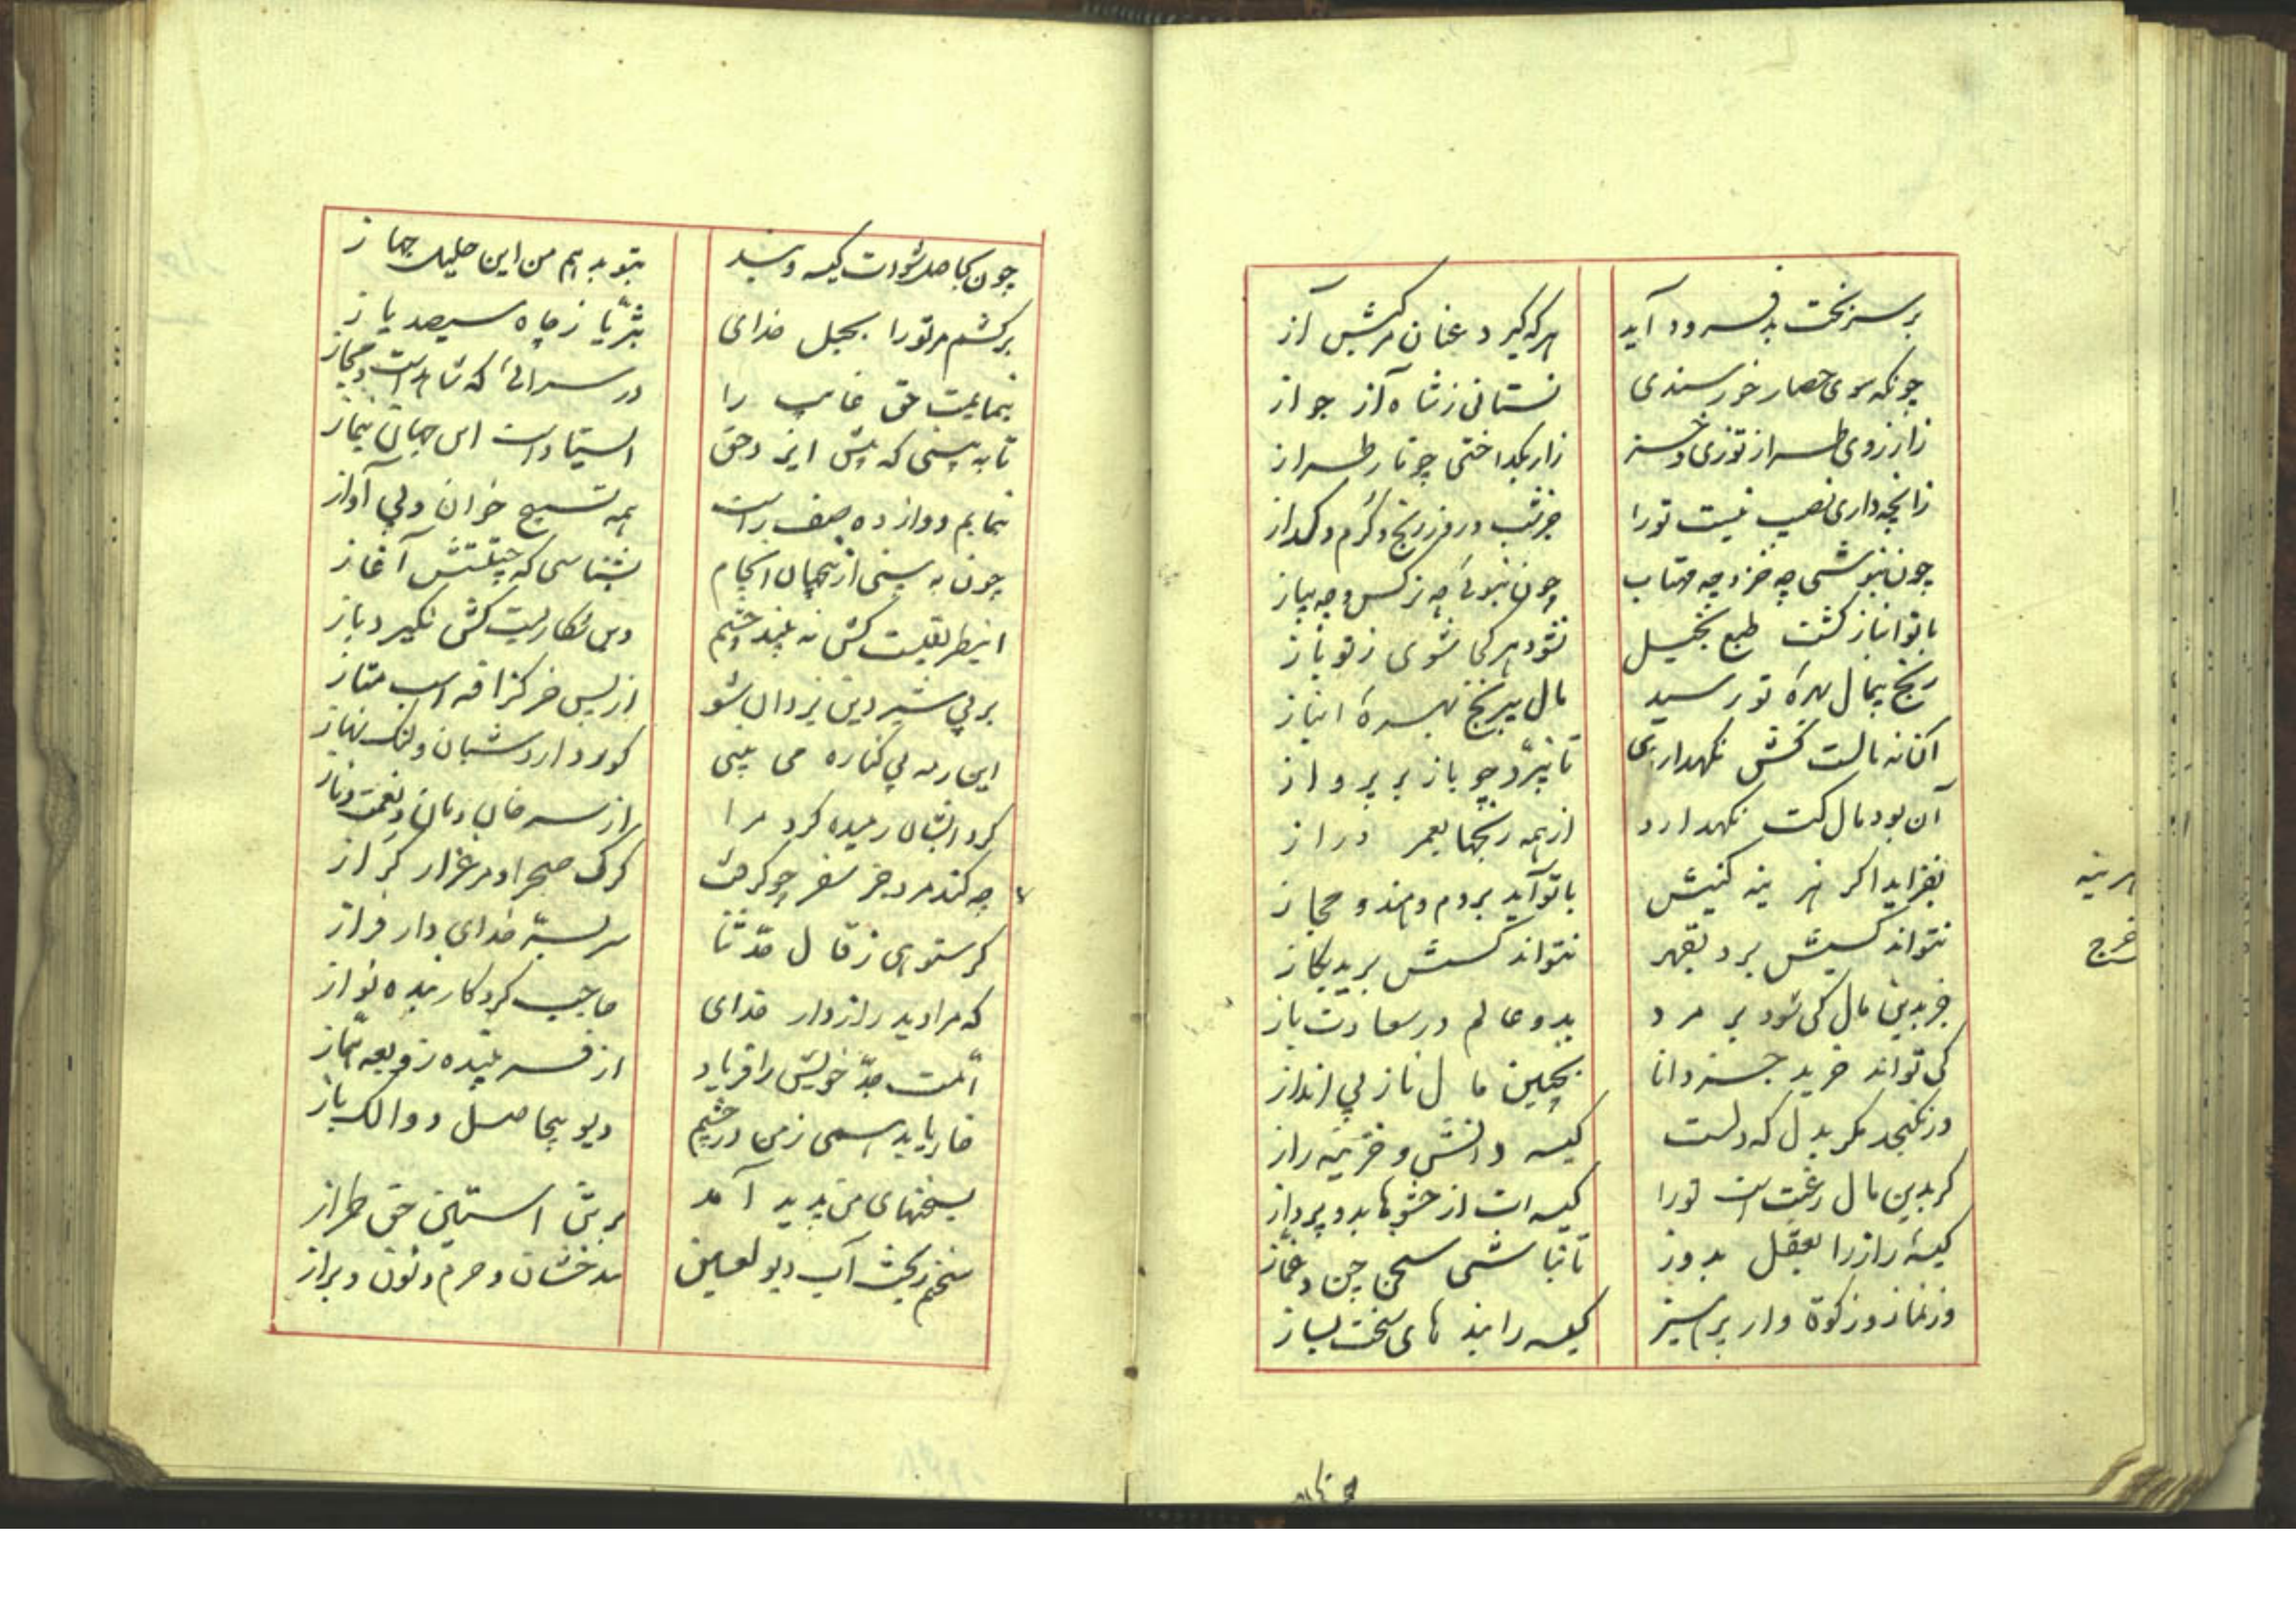 بر سر بخت بد فرود آید
هر که گیرد عنان مرکبش آز
چونکه سوی حصار خورسندی
نستانی ز شاه آز جواز
ز آرزوی طراز توزی و خز
زار بگداختی چو تار طراز
زانچه داری نصیب نیست تو را
جز شب و روز رنج و گرم و گداز
چون نپوشی چه خز و چه مهتاب
چون نبوئی چه نرگس و چه پیاز
با تو انباز گشت طبع بخیل
نشود هر کجا شوی ز تو باز
رنج بیمال بهرهٔ تو رسید
مال بیرنج بهرهٔ انباز
آن نه مالست کش نگهداری
تا نپرد چو باز بر پرواز
آن بود مال کت نگهدارد
از همه رنجها بعمر دراز
بفزاید اگر هزینه کنیش
با تو آید بروم و هند و حجاز
نتواند کسیش برد بقهر
نتواند کسش برید بگاز
جز بدین مال کی شود بر مرد
بدو عالم در سعادت باز
کی تواند خرید جز دانا
بچنین مال ناز بی انداز
در نگنجد مگر بدل که دلست
کیسه دانش و خزینه راز
گر بدین مال رغبت است تو را
کیسه ات از حشوها بدو پرداز
کیسهٔ راز را بعقل بدوز
تا نباشی سخن چین و غماز
وز نماز و زکوة وز پرهیز
کیسه را بندهای سخت بساز
هزینه
خرج
چون بحاصل شودت کیسه و بند
بتو بدهم من این جلیل جهاز
برکشم مر تو را بحبل خدای
بثریا ز چاه سیصد یاز
بنمایمت حق غایب را
در سرائی که شاهدست و مجاز
تا به بینی که پیش ایزد حق
ایستادست این جهان بنماز
بنمایم دوازده صف راست
همه تسبیح خوان و بی آواز
چون به بینی از آنجهان انجام
بشناسی که چیستش آغاز
اینطریقیست کش نه بیند چشم
وین شکاریست کش نگیرد باز
بر پی شیر دین یزدان شو
از پس خر گزافه اسب متاز
این رمه بی کناره می بینی
کورد دارد شبان و لنگ نهاز
گرد ایشان رمیده کرد مرا
از سر خان و مان و نعمت و ناز
چه کند مرد جز سفر چو گرفت
گرگ صحرا و مرغزار گراز
گر ستوهی ز قال حدثنا
سر بسته خدای دار فراز
که مرا دید رازدار خدای
حاجب کردگار بنده نواز
امت جد خویش را فریاد
از فریبنده زوبعه هماز
خار یابد همی ز من در چشم
دیو بیحاصل دوالک باز
بسخنهای من پدید آمد
بر تن آستین حق طراز
سخنم ریخت آب دیو لعین